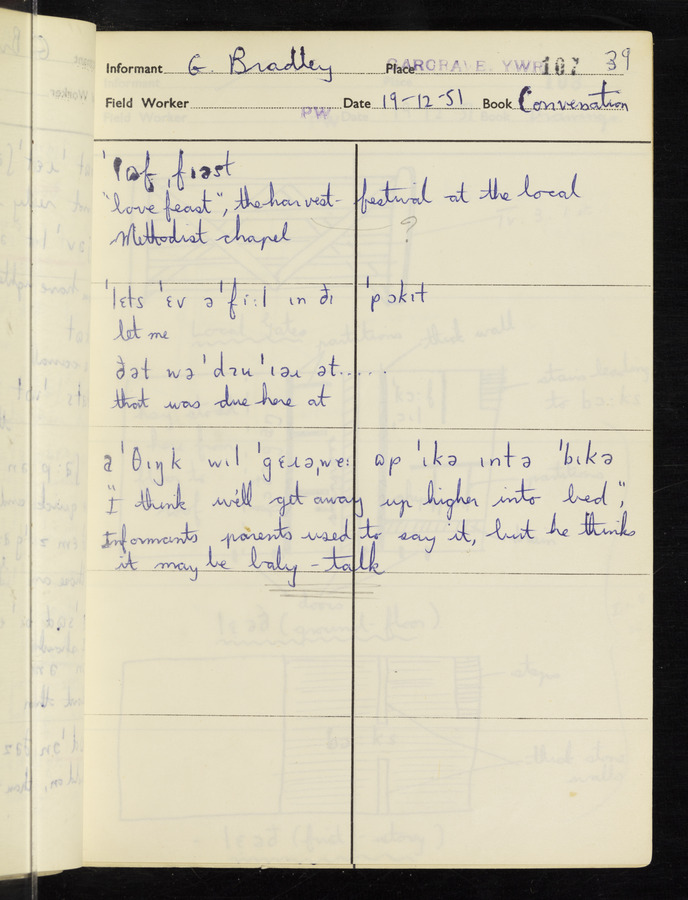 Informant G. Bradley Place GARGRAVE. YWR 107 39
Field Worker PW Date 19-12-51 Book Conversation
"love feast", the harvest- festival at the local
Methodist chapel ?
ˈlɛts ˈɛv ə ˈfiːl ɪn ðɪ ˈpɔkɪt
let me
ðət wə ˈdɪu ˈɪəɹ ət.....
that was due here at
ˈθɪŋk wɪl ˈgɛɹəˌweː ʊp ˈɪkə ɪntə ˈbɪkə
"I think we'll get away up higher into bed";
Informants parents used to say it, but he thinks
it may be baby-talk